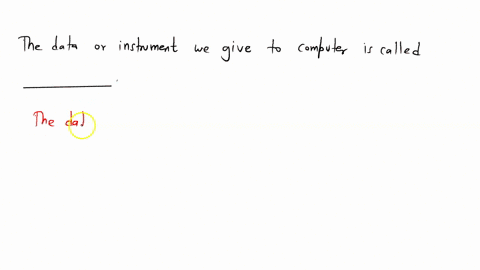 The data or instrument we give to computer is called
The dat